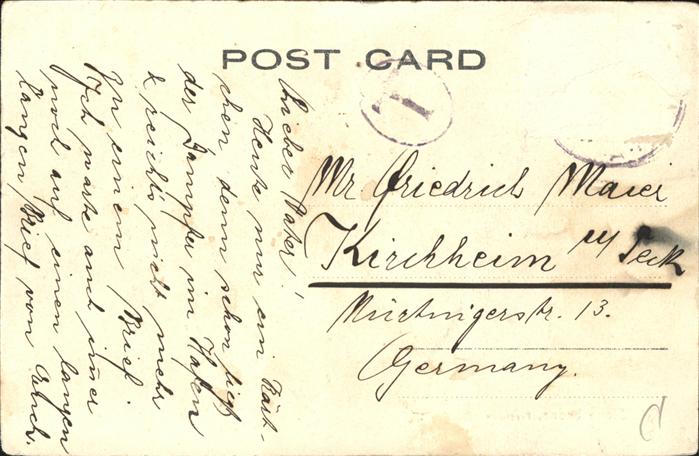 POST CARD
T
Lieber Vater!
Heute nur ein Kärt-
chen denn schon liegt
der Dampfer im Hafen
& reicht's nicht mehr
zu einem Brief.
Ich warte amt imer
noch auf einen langen
langen Brief von Euch.
Mr Friedrich Maier
Kirchheim u/Teck
Nürtingerstr. 13.
Germany.